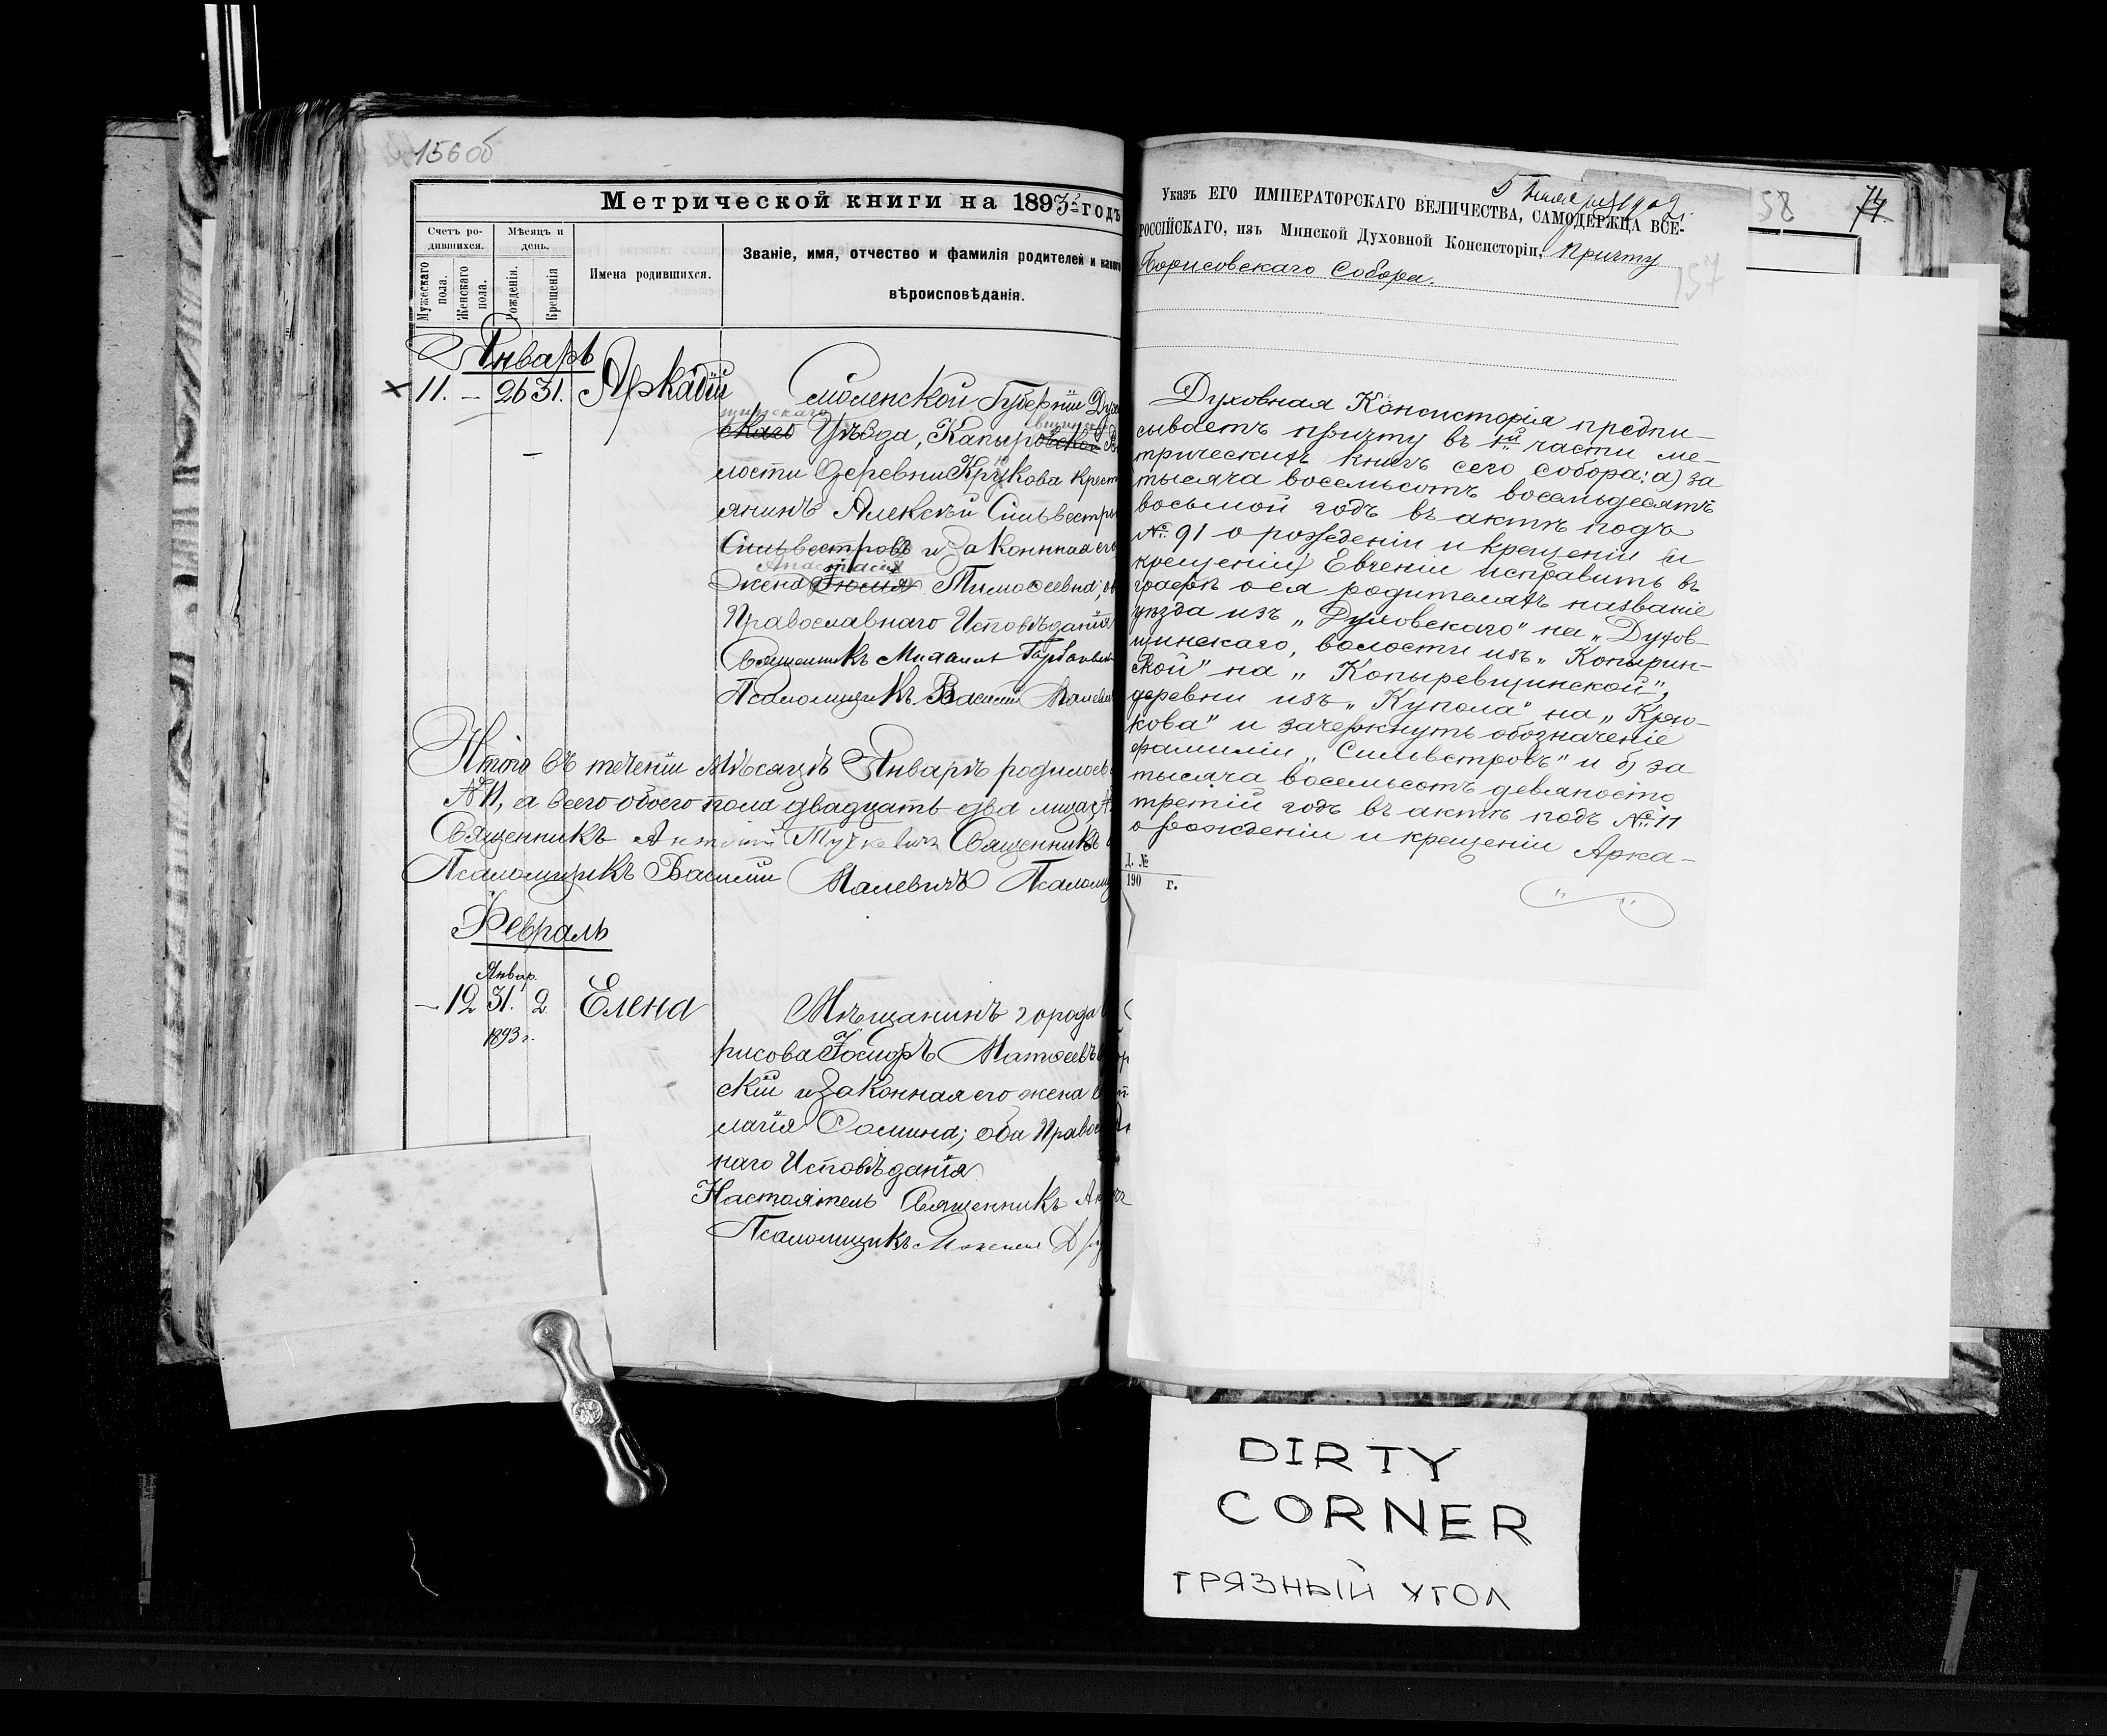 156 об
Метрической книги на 1893 годъ
Счетъ ро-
дившихся.
Мѣсяцъ и
день.
Мужескаго
пола.
Женскаго
пола.
Рожденія.
Крещенія
Имена родившихся.
Званіе, имя, отчество и фамилія родителей и какого
вѣроисповѣданія.
Январь
11. – 26 31. Аркадій
Смоленской Губерніи Дух
щинскаго
скаго Уѣзда, Капыровской
лости деревни Крюкова крест
янинъ Алексѣй Сильвестр
Сильвестровъ и законная его
Анастасія
жена Тимоѳеевна; об
Православнаго Исповѣданія
Священникъ Михаилъ
Псаломщикъ Василій Малеви
Итого въ теченіи мѣсяцѣ Январѣ родилось
№ 11, а всего обоего пола двадцать два лица
Священникъ Антоній Священникъ
Псаломщикъ Василій Малевичъ Псаломщ
Февраль
Январ.
– 12 31. 2 Елена
1893 г.
Мѣщанинъ города
рисова Іосифъ Матѳеевъ
скій и законная его жена
лагія Ѳомина; оба Право
наго Исповѣданія
Настоятель Священникъ
Псаломщикъ
58 74.
157
5 1902.
Указъ ЕГО ИМПЕРАТОРСКАГО ВЕЛИЧЕСТВА, САМОДЕРЖЦА ВСЕ-
РОССІЙСКАГО, изъ Минской Духовной Консисторіи, Причту
Борисовскаго Собора.
Духовная Консисторія предпи-
сываетъ причту въ 1й части ме-
трическихъ книгъ сего собора: а) за
тысяча восемьсотъ восемьдесятъ
восьмой годъ въ актѣ подъ
№ 91 о рожденіи и крещеніи (и
крещеніи) Евгеніи исправить въ
графѣ о ея родителяхъ названіе
уѣзда изъ „Духовскаго" на „Духов-
щинскаго, волости изъ „Копырин-
ской" на „Копыревщинской",
деревни изъ „Купола" на „Крю-
кова" и зачеркнуть обозначеніе
фамиліи „Сильвестровъ" и б) за
тысяча восемьсотъ девяносто
третій годъ въ актѣ подъ № 11
о рожденіи и крещеніи Арка-
Д. №
190 г.
DIRTY
CORNER
ГРЯЗНЫЙ УГОЛ